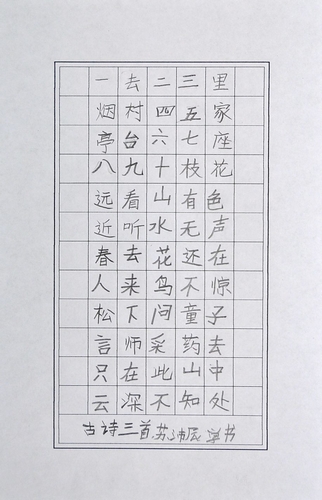 一去二三里
烟村四五家
亭台六七座
八九十枝花
远看山有色
近听水无声
春去花还在
人来鸟不惊
松下问童子
言师采药去
只在此山中
云深不知处
古诗三首 苏沛辰 学书